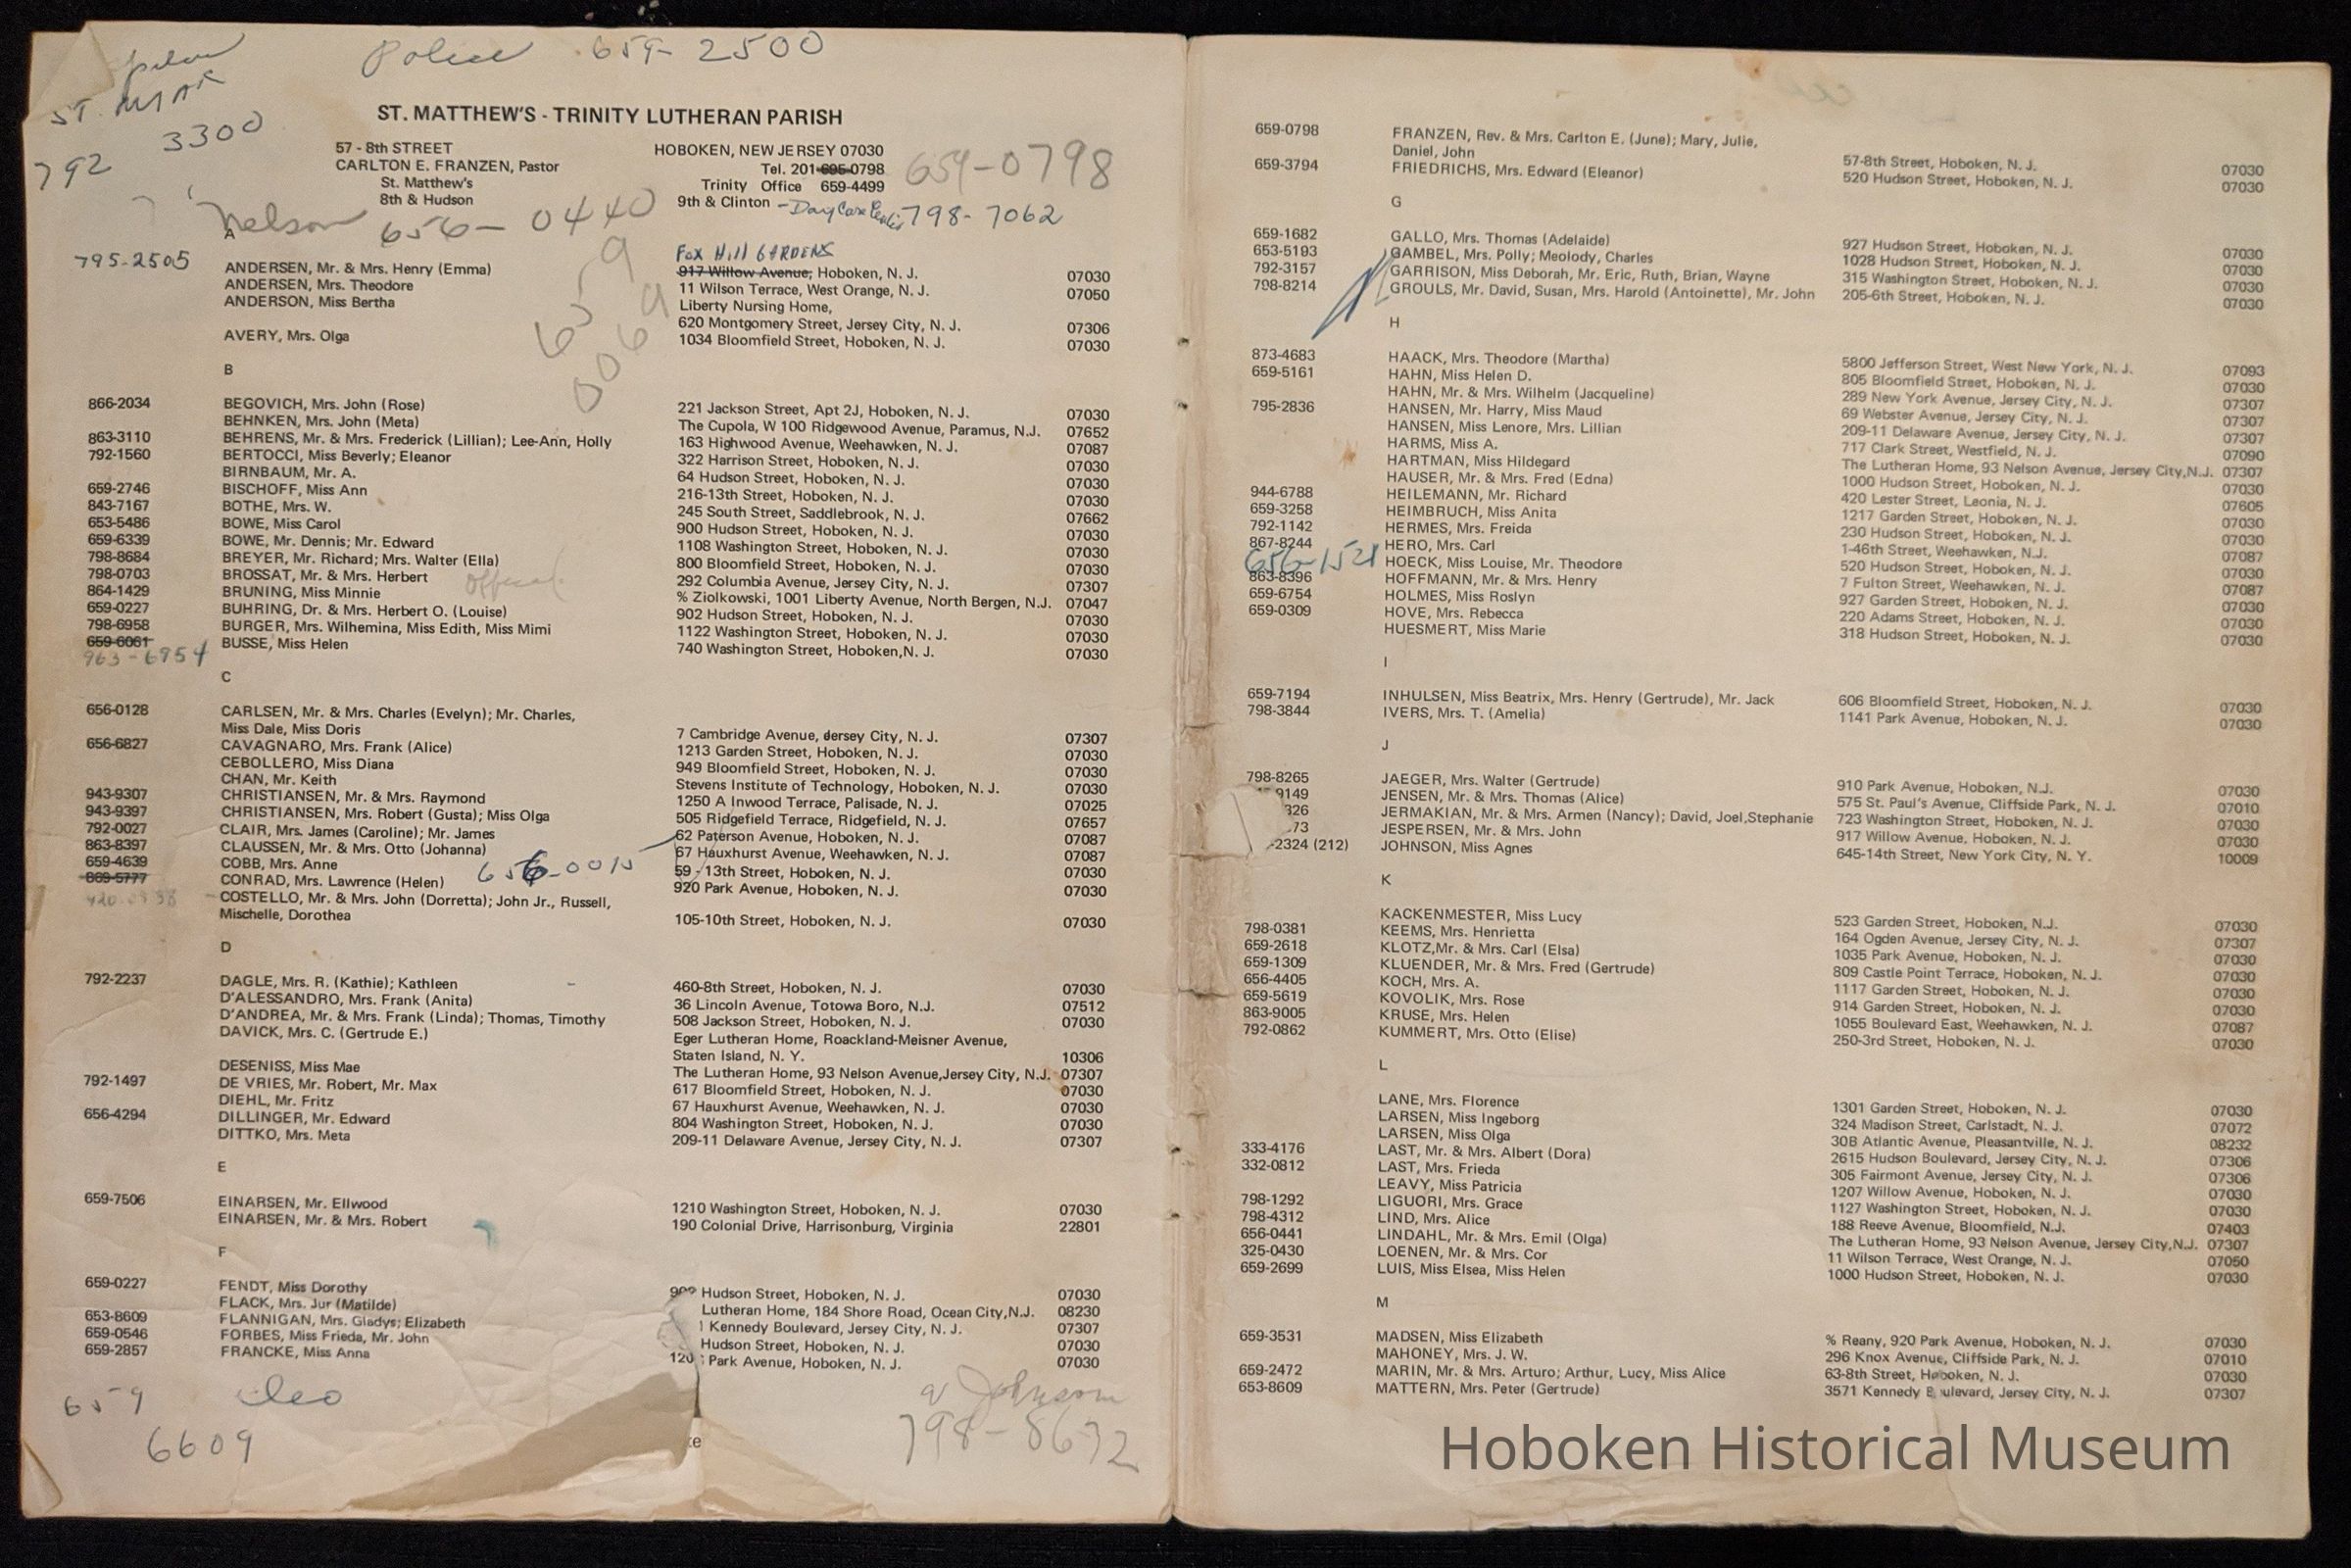 Police 659-2500
ST. MARK
3300
792
ST. MATTHEW'S - TRINITY LUTHERAN PARISH
57 - 8th STREET HOBOKEN, NEW JERSEY 07030
CARLTON E. FRANZEN, Pastor Tel. 201-695-0798 659-0798
St. Matthew's Trinity Office 659-4499
8th & Hudson 9th & Clinton - Day Care 798-7062
Nelson 656-0440
659
0069
A
Fox Hill GARDENS
795-2505 ANDERSEN, Mr. & Mrs. Henry (Emma) 917 Willow Avenue, Hoboken, N. J. 07030
ANDERSEN, Mrs. Theodore 11 Wilson Terrace, West Orange, N. J. 07050
ANDERSON, Miss Bertha Liberty Nursing Home,
620 Montgomery Street, Jersey City, N. J. 07306
AVERY, Mrs. Olga 1034 Bloomfield Street, Hoboken, N. J. 07030
B
866-2034 BEGOVICH, Mrs. John (Rose) 221 Jackson Street, Apt 2J, Hoboken, N. J. 07030
BEHNKEN, Mrs. John (Meta) The Cupola, W 100 Ridgewood Avenue, Paramus, N.J. 07652
863-3110 BEHRENS, Mr. & Mrs. Frederick (Lillian); Lee-Ann, Holly 163 Highwood Avenue, Weehawken, N. J. 07087
792-1560 BERTOCCI, Miss Beverly; Eleanor 322 Harrison Street, Hoboken, N. J. 07030
BIRNBAUM, Mr. A. 64 Hudson Street, Hoboken, N. J. 07030
659-2746 BISCHOFF, Miss Ann 216-13th Street, Hoboken, N. J. 07030
843-7167 BOTHE, Mrs. W. 245 South Street, Saddlebrook, N. J. 07662
653-5486 BOWE, Miss Carol 900 Hudson Street, Hoboken, N. J. 07030
659-6339 BOWE, Mr. Dennis; Mr. Edward 1108 Washington Street, Hoboken, N. J. 07030
798-8684 BREYER, Mr. Richard; Mrs. Walter (Ella) 800 Bloomfield Street, Hoboken, N. J. 07030
798-0703 BROSSAT, Mr. & Mrs. Herbert 292 Columbia Avenue, Jersey City, N. J. 07307
864-1429 BRUNING, Miss Minnie % Ziolkowski, 1001 Liberty Avenue, North Bergen, N.J. 07047
659-0227 BUHRING, Dr. & Mrs. Herbert O. (Louise) 902 Hudson Street, Hoboken, N. J. 07030
798-6958 BURGER, Mrs. Wilhemina, Miss Edith, Miss Mimi 1122 Washington Street, Hoboken, N. J. 07030
659-6061 BUSSE, Miss Helen 740 Washington Street, Hoboken,N. J. 07030
963-6954
C
656-0128 CARLSEN, Mr. & Mrs. Charles (Evelyn); Mr. Charles,
Miss Dale, Miss Doris 7 Cambridge Avenue, Jersey City, N. J. 07307
656-6827 CAVAGNARO, Mrs. Frank (Alice) 1213 Garden Street, Hoboken, N. J. 07030
CEBOLLERO, Miss Diana 949 Bloomfield Street, Hoboken, N. J. 07030
CHAN, Mr. Keith Stevens Institute of Technology, Hoboken, N. J. 07030
943-9307 CHRISTIANSEN, Mr. & Mrs. Raymond 1250 A Inwood Terrace, Palisade, N. J. 07025
943-9397 CHRISTIANSEN, Mrs. Robert (Gusta); Miss Olga 505 Ridgefield Terrace, Ridgefield, N. J. 07657
792-0027 CLAIR, Mrs. James (Caroline); Mr. James 62 Paterson Avenue, Hoboken, N. J. 07087
863-8397 CLAUSSEN, Mr. & Mrs. Otto (Johanna) 67 Hauxhurst Avenue, Weehawken, N. J. 07087
659-4639 COBB, Mrs. Anne 656-0015 59 - 13th Street, Hoboken, N. J. 07030
869-5777 CONRAD, Mrs. Lawrence (Helen) 920 Park Avenue, Hoboken, N. J. 07030
COSTELLO, Mr. & Mrs. John (Dorretta); John Jr., Russell,
Mischelle, Dorothea 105-10th Street, Hoboken, N. J. 07030
D
792-2237 DAGLE, Mrs. R. (Kathie); Kathleen 460-8th Street, Hoboken, N. J. 07030
D'ALESSANDRO, Mrs. Frank (Anita) 36 Lincoln Avenue, Totowa Boro, N.J. 07512
D'ANDREA, Mr. & Mrs. Frank (Linda); Thomas, Timothy 508 Jackson Street, Hoboken, N. J. 07030
DAVICK, Mrs. C. (Gertrude E.) Eger Lutheran Home, Roackland-Meisner Avenue,
Staten Island, N. Y. 10306
DESENISS, Miss Mae The Lutheran Home, 93 Nelson Avenue,Jersey City, N.J. 07307
792-1497 DE VRIES, Mr. Robert, Mr. Max 617 Bloomfield Street, Hoboken, N. J. 07030
DIEHL, Mr. Fritz 67 Hauxhurst Avenue, Weehawken, N. J. 07030
656-4294 DILLINGER, Mr. Edward 804 Washington Street, Hoboken, N. J. 07030
DITTKO, Mrs. Meta 209-11 Delaware Avenue, Jersey City, N. J. 07307
E
659-7506 EINARSEN, Mr. Ellwood 1210 Washington Street, Hoboken, N. J. 07030
EINARSEN, Mr. & Mrs. Robert 190 Colonial Drive, Harrisonburg, Virginia 22801
F
659-0227 FENDT, Miss Dorothy 902 Hudson Street, Hoboken, N. J. 07030
FLACK, Mrs. Jur (Matilde) Lutheran Home, 184 Shore Road, Ocean City,N.J. 08230
653-8609 FLANNIGAN, Mrs. Gladys; Elizabeth 1 Kennedy Boulevard, Jersey City, N. J. 07307
659-0546 FORBES, Miss Frieda, Mr. John Hudson Street, Hoboken, N. J. 07030
659-2857 FRANCKE, Miss Anna 120 Park Avenue, Hoboken, N. J. 07030
659 Cleo
6609
Johnson
798-8672
659-0798 FRANZEN, Rev. & Mrs. Carlton E. (June); Mary, Julie,
Daniel, John 57-8th Street, Hoboken, N. J. 07030
659-3794 FRIEDRICHS, Mrs. Edward (Eleanor) 520 Hudson Street, Hoboken, N. J. 07030
G
659-1682 GALLO, Mrs. Thomas (Adelaide) 927 Hudson Street, Hoboken, N. J. 07030
653-5193 GAMBEL, Mrs. Polly; Meolody, Charles 1028 Hudson Street, Hoboken, N. J. 07030
792-3157 GARRISON, Miss Deborah, Mr. Eric, Ruth, Brian, Wayne 315 Washington Street, Hoboken, N. J. 07030
798-8214 GROULS, Mr. David, Susan, Mrs. Harold (Antoinette), Mr. John 205-6th Street, Hoboken, N. J. 07030
H
873-4683 HAACK, Mrs. Theodore (Martha) 5800 Jefferson Street, West New York, N. J. 07093
659-5161 HAHN, Miss Helen D. 805 Bloomfield Street, Hoboken, N. J. 07030
HAHN, Mr. & Mrs. Wilhelm (Jacqueline) 289 New York Avenue, Jersey City, N. J. 07307
795-2836 HANSEN, Mr. Harry, Miss Maud 69 Webster Avenue, Jersey City, N. J. 07307
HANSEN, Miss Lenore, Mrs. Lillian 209-11 Delaware Avenue, Jersey City, N. J. 07307
HARMS, Miss A. 717 Clark Street, Westfield, N. J. 07090
HARTMAN, Miss Hildegard The Lutheran Home, 93 Nelson Avenue, Jersey City,N.J. 07307
HAUSER, Mr. & Mrs. Fred (Edna) 1000 Hudson Street, Hoboken, N. J. 07030
944-6788 HEILEMANN, Mr. Richard 420 Lester Street, Leonia, N. J. 07605
659-3258 HEIMBRUCH, Miss Anita 1217 Garden Street, Hoboken, N. J. 07030
792-1142 HERMES, Mrs. Freida 230 Hudson Street, Hoboken, N. J. 07030
867-8244 HERO, Mrs. Carl 1-46th Street, Weehawken, N.J. 07087
656-1521 HOECK, Miss Louise, Mr. Theodore 520 Hudson Street, Hoboken, N. J. 07030
863-8396 HOFFMANN, Mr. & Mrs. Henry 7 Fulton Street, Weehawken, N. J. 07087
659-6754 HOLMES, Miss Roslyn 927 Garden Street, Hoboken, N. J. 07030
659-0309 HOVE, Mrs. Rebecca 220 Adams Street, Hoboken, N. J. 07030
HUESMERT, Miss Marie 318 Hudson Street, Hoboken, N. J. 07030
I
659-7194 INHULSEN, Miss Beatrix, Mrs. Henry (Gertrude), Mr. Jack 606 Bloomfield Street, Hoboken, N. J. 07030
798-3844 IVERS, Mrs. T. (Amelia) 1141 Park Avenue, Hoboken, N. J. 07030
J
798-8265 JAEGER, Mrs. Walter (Gertrude) 910 Park Avenue, Hoboken, N.J. 07030
9149 JENSEN, Mr. & Mrs. Thomas (Alice) 575 St. Paul's Avenue, Cliffside Park, N. J. 07010
326 JERMAKIAN, Mr. & Mrs. Armen (Nancy); David, Joel,Stephanie 723 Washington Street, Hoboken, N. J. 07030
73 JESPERSEN, Mr. & Mrs. John 917 Willow Avenue, Hoboken, N. J. 07030
-2324 (212) JOHNSON, Miss Agnes 645-14th Street, New York City, N. Y. 10009
K
KACKENMESTER, Miss Lucy 523 Garden Street, Hoboken, N.J. 07030
798-0381 KEEMS, Mrs. Henrietta 164 Ogden Avenue, Jersey City, N. J. 07307
659-2618 KLOTZ,Mr. & Mrs. Carl (Elsa) 1035 Park Avenue, Hoboken, N. J. 07030
659-1309 KLUENDER, Mr. & Mrs. Fred (Gertrude) 809 Castle Point Terrace, Hoboken, N. J. 07030
656-4405 KOCH, Mrs. A. 1117 Garden Street, Hoboken, N. J. 07030
659-5619 KOVOLIK, Mrs. Rose 914 Garden Street, Hoboken, N. J. 07030
863-9005 KRUSE, Mrs. Helen 1055 Boulevard East, Weehawken, N. J. 07087
792-0862 KUMMERT, Mrs. Otto (Elise) 250-3rd Street, Hoboken, N. J. 07030
L
LANE, Mrs. Florence 1301 Garden Street, Hoboken, N. J. 07030
LARSEN, Miss Ingeborg 324 Madison Street, Carlstadt, N. J. 07072
LARSEN, Miss Olga 30B Atlantic Avenue, Pleasantville, N. J. 08232
333-4176 LAST, Mr. & Mrs. Albert (Dora) 2615 Hudson Boulevard, Jersey City, N. J. 07306
332-0812 LAST, Mrs. Frieda 305 Fairmont Avenue, Jersey City, N. J. 07306
LEAVY, Miss Patricia 1207 Willow Avenue, Hoboken, N. J. 07030
798-1292 LIGUORI, Mrs. Grace 1127 Washington Street, Hoboken, N. J. 07030
798-4312 LIND, Mrs. Alice 188 Reeve Avenue, Bloomfield, N.J. 07403
656-0441 LINDAHL, Mr. & Mrs. Emil (Olga) The Lutheran Home, 93 Nelson Avenue, Jersey City,N.J. 07307
325-0430 LOENEN, Mr. & Mrs. Cor 11 Wilson Terrace, West Orange, N. J. 07050
659-2699 LUIS, Miss Elsea, Miss Helen 1000 Hudson Street, Hoboken, N. J. 07030
M
659-3531 MADSEN, Miss Elizabeth % Reany, 920 Park Avenue, Hoboken, N. J. 07030
MAHONEY, Mrs. J. W. 296 Knox Avenue, Cliffside Park, N. J. 07010
659-2472 MARIN, Mr. & Mrs. Arturo; Arthur, Lucy, Miss Alice 63-8th Street, Hoboken, N. J. 07030
653-8609 MATTERN, Mrs. Peter (Gertrude) 3571 Kennedy Boulevard, Jersey City, N. J. 07307
Hoboken Historical Museum